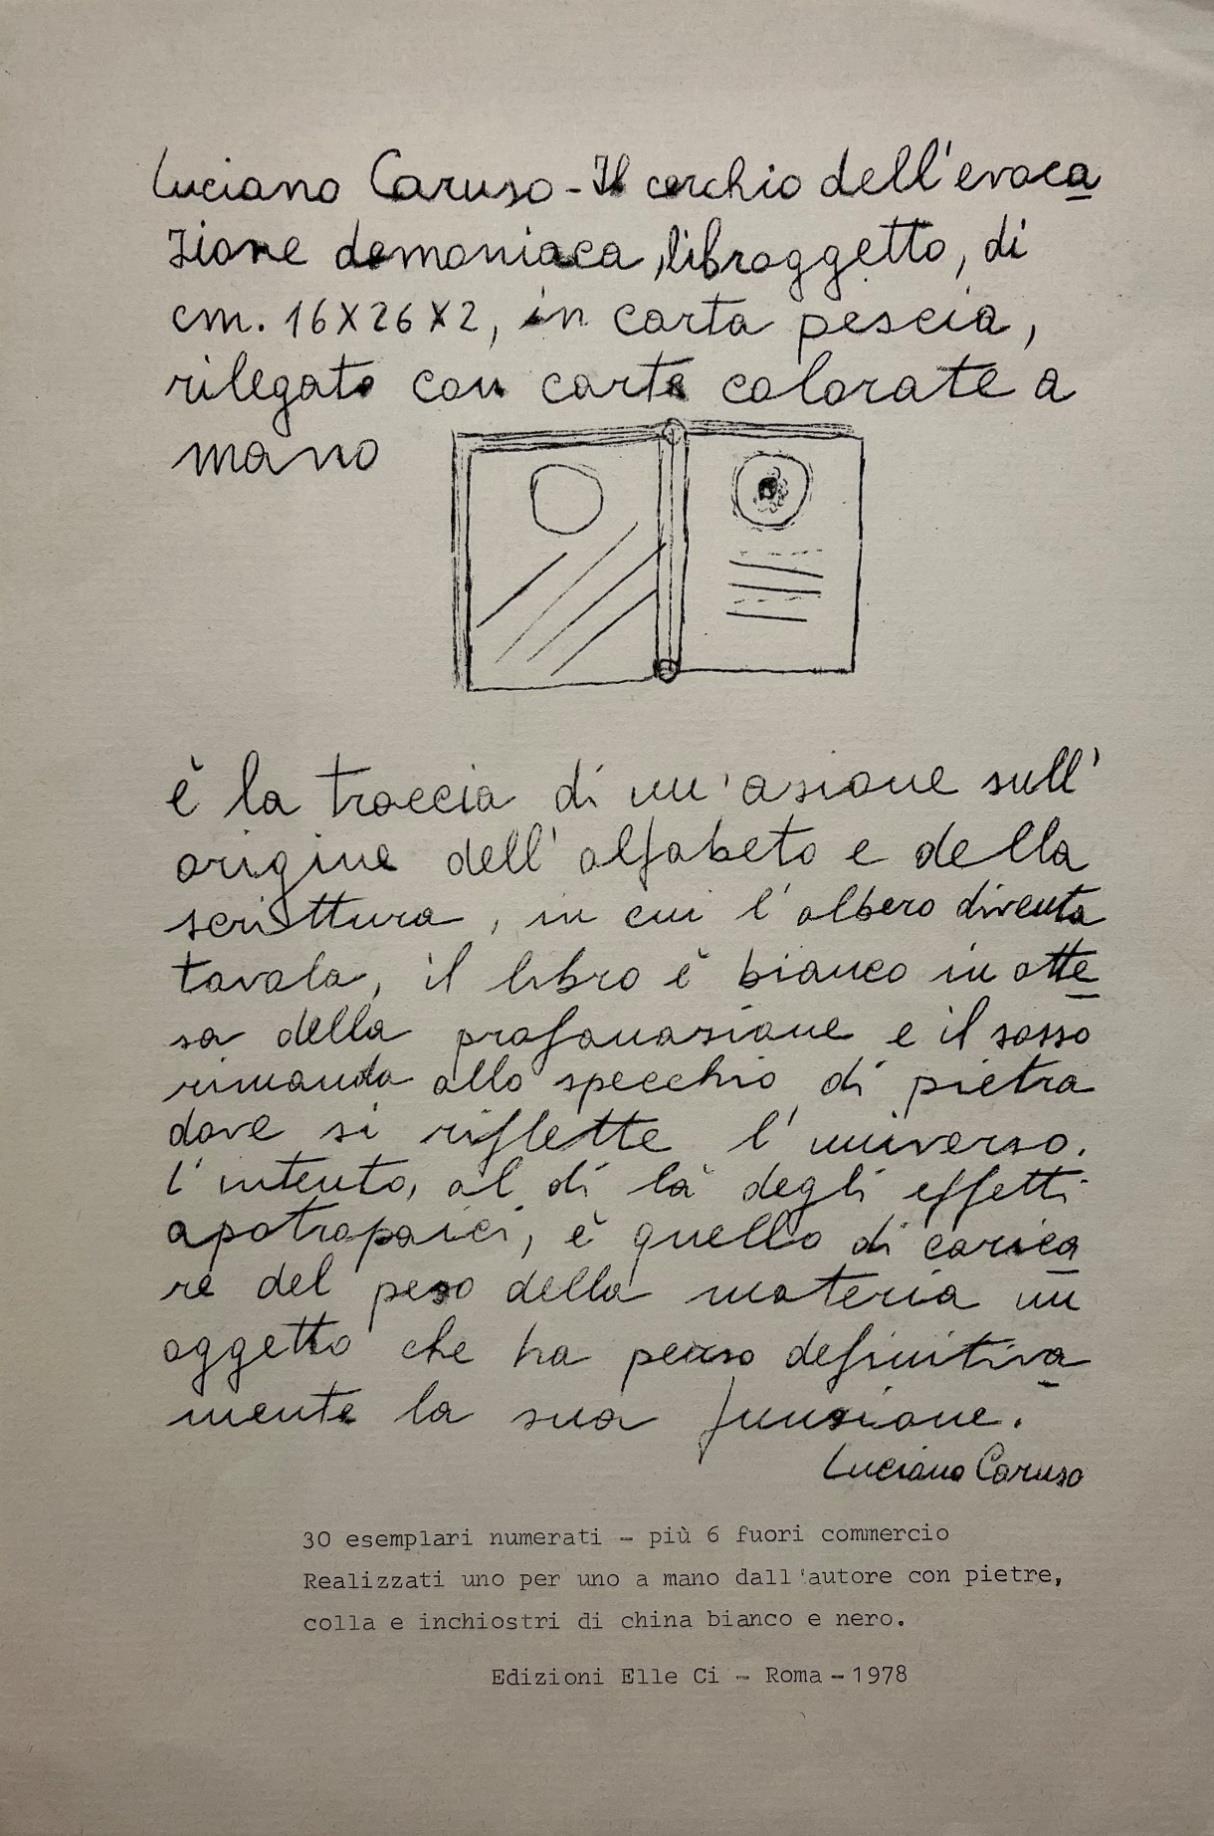 Luciano Caruso - Il cerchio dell'evoca
zione demoniaca, libroggetto, di
cm. 16X26X2, in carta pescia,
rilegato con carte colorate a
mano
è la traccia di un'azione sull'
origine dell'alfabeto e della
scrittura, in cui l'albero diventa
tavola, il libro è bianco in atte
sa della profanazione e il sasso
rimanda allo specchio di pietra
dove si riflette l'universo.
L'intento, al di là degli effetti
apotropaici, è quello di carica
re del peso della materia un
oggetto che ha perso definitiva
mente la sua funzione.
Luciano Caruso
30 esemplari numerati - più 6 fuori commercio
Realizzati uno per uno a mano dall'autore con pietre,
colla e inchiostri di china bianco e nero.
Edizioni Elle Ci - Roma - 1978